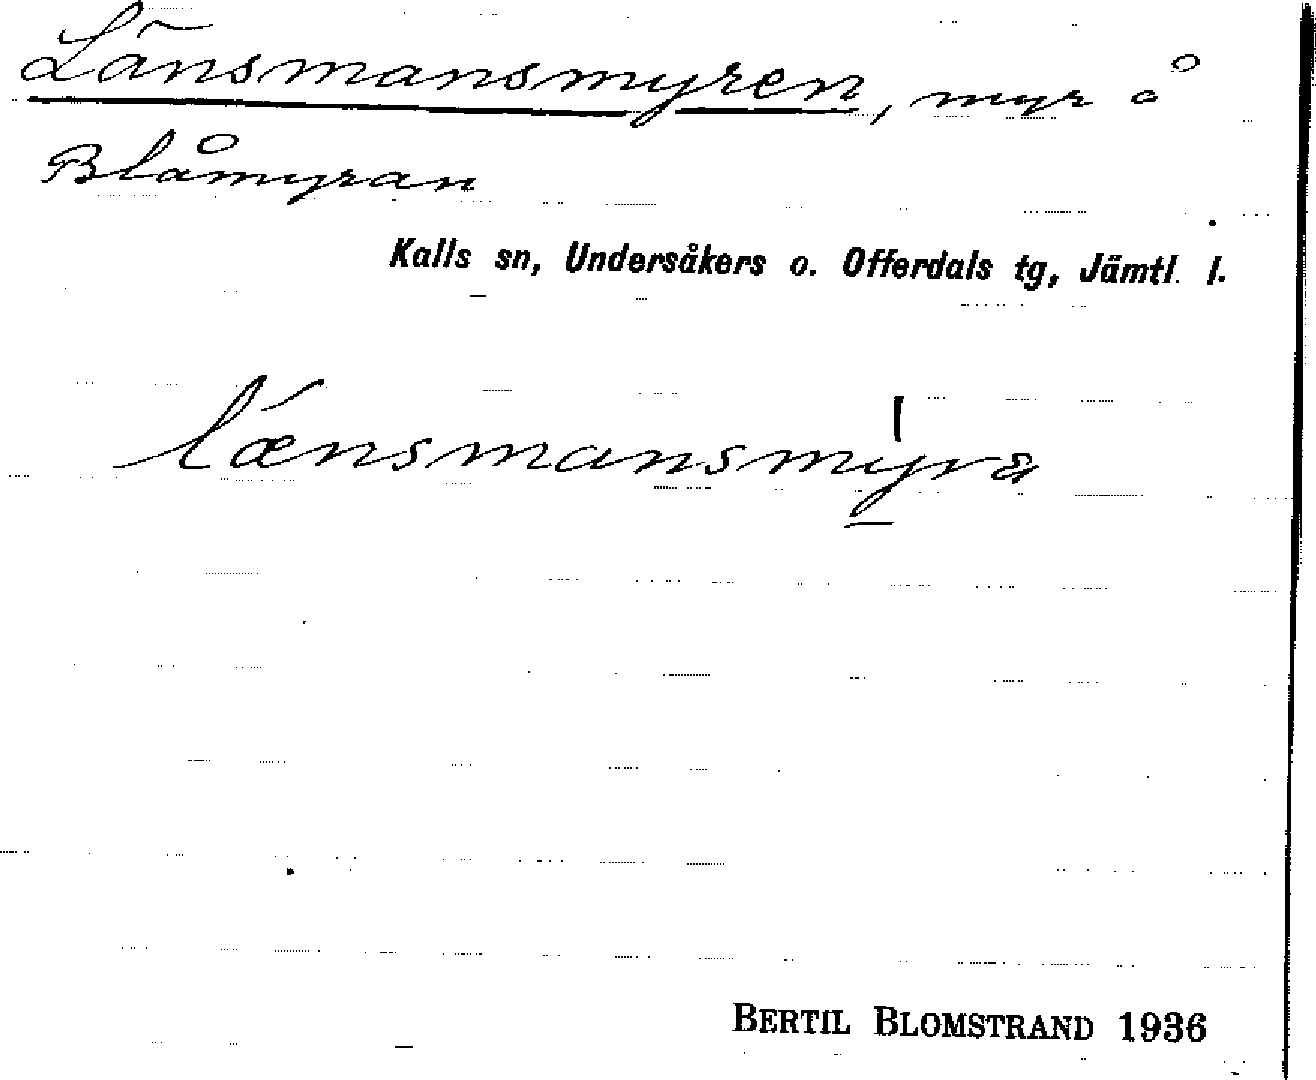 Länsmansmyren, myr å
Blåmyran
Kalls sn, Undersåkers o. Offerdals tg, Jämtl. l.
lǽnsmansmy̱ra
BERTIL BLOMSTRAND 1936